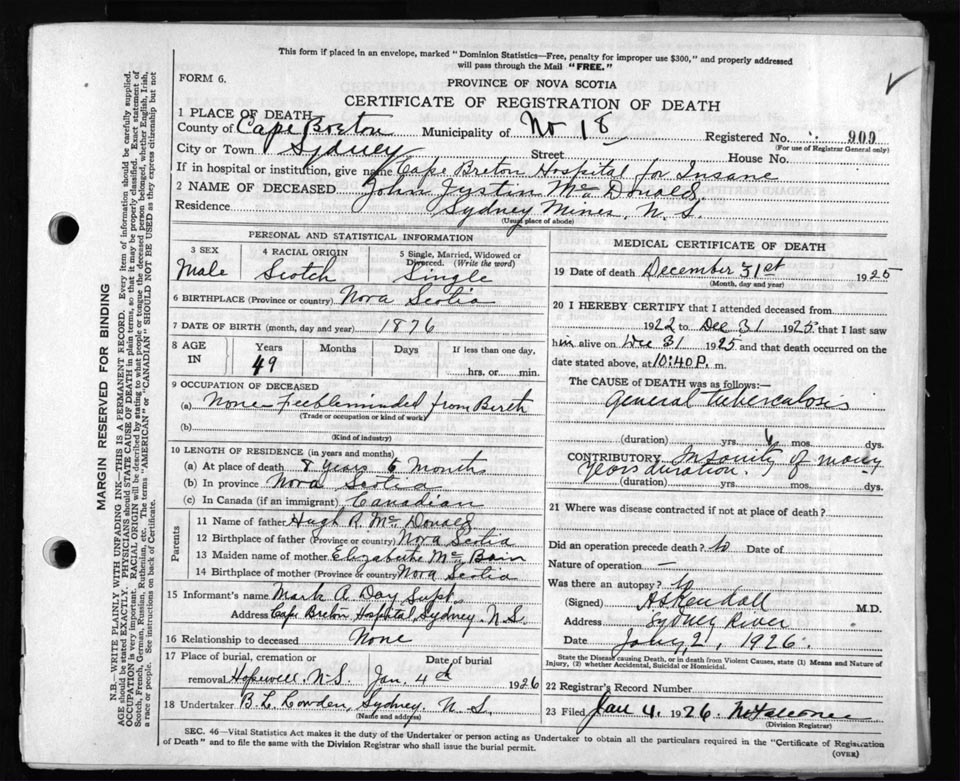 This form if placed in an envelope, marked "Dominion Statistics—Free, penalty for improper use $300," and properly addressed
will pass through the Mail "FREE."
FORM 6.
PROVINCE OF NOVA SCOTIA
CERTIFICATE OF REGISTRATION OF DEATH
1 PLACE OF DEATH
County of Cape Breton Municipality of No 18 Registered No. 909
(For use of Registrar General only)
City or Town Sydney Street House No.
If in hospital or institution, give name Cape Breton Hospital for Insane
2 NAME OF DECEASED John Jystin Mc Donald
Residence Sydney Mines, N. S.
(Usual place of abode)
PERSONAL AND STATISTICAL INFORMATION
3 SEX 4 RACIAL ORIGIN 5 Single, Married, Widowed or Divorced. (Write the word)
Male Scotch Single
6 BIRTHPLACE (Province or country) Nova Scotia
7 DATE OF BIRTH (month, day and year) 1876
8 AGE IN Years Months Days If less than one day,
49 hrs. or min.
9 OCCUPATION OF DECEASED
(a) None Feebleminded from Birth
(Trade or occupation or kind of work)
(b)
(Kind of industry)
10 LENGTH OF RESIDENCE (in years and months)
(a) At place of death 8 years 6 Months
(b) In province Nova Scotia
(c) In Canada (if an immigrant) Canadian
Parents
11 Name of father Hugh R. Mc Donald
12 Birthplace of father (Province or country) Nova Scotia
13 Maiden name of mother Elizabeth Mc Bain
14 Birthplace of mother (Province or country) Nova Scotia
15 Informant's name Mark A. Day Supt.
Address Cape Breton Hospital, Sydney. N.S.
16 Relationship to deceased None
17 Place of burial, cremation or Date of burial
removal Hopewell, N.S. Jan. 4th 1926
18 Undertaker B. L. Lowden, Sydney. N. S.
(Name and address)
MEDICAL CERTIFICATE OF DEATH
19 Date of death December 31st 1925
(Month, day and year)
20 I HEREBY CERTIFY that I attended deceased from
1922 to Dec 31 1925 that I last saw
him alive on Dec 31 1925 and that death occurred on the
date stated above, at 10:40 P. m.
The CAUSE OF DEATH was as follows:—
General tuberculosis
(duration) yrs. 6 mos. dys.
CONTRIBUTORY Insanity of many
years duration.
(duration) yrs. mos. dys.
21 Where was disease contracted if not at place of death?
Did an operation precede death? No Date of
Nature of operation —
Was there an autopsy? No
(Signed) A S Kendall M.D.
Address Sydney River
Date Jany 2, 1926.
State the Disease causing Death, or in death from Violent Causes, state (1) Means and Nature of
Injury, (2) whether Accidental, Suicidal or Homicidal.
22 Registrar's Record Number
23 Filed Jan 4. 1926
(Division Registrar)
SEC. 46—Vital Statistics Act makes it the duty of the Undertaker or person acting as Undertaker to obtain all the particulars required in the "Certificate of Registration
of Death" and to file the same with the Division Registrar who shall issue the burial permit.
(OVER)
MARGIN RESERVED FOR BINDING
N.B.—WRITE PLAINLY WITH UNFADING INK—THIS IS A PERMANENT RECORD. Every item of information should be carefully supplied.
AGE should be stated EXACTLY. PHYSICIANS should STATE CAUSE OF DEATH in plain terms, so that it may be properly classified. Exact statement of
OCCUPATION is very important. RACIAL ORIGIN will be described by stating to what people or tongue the deceased person belonged, whether English, Irish,
Scotch, French, German, Russian, Ruthenian, etc. The terms "AMERICAN" or "CANADIAN" SHOULD NOT BE USED as they express citizenship but not
a race or people. See instructions on back of Certificate.